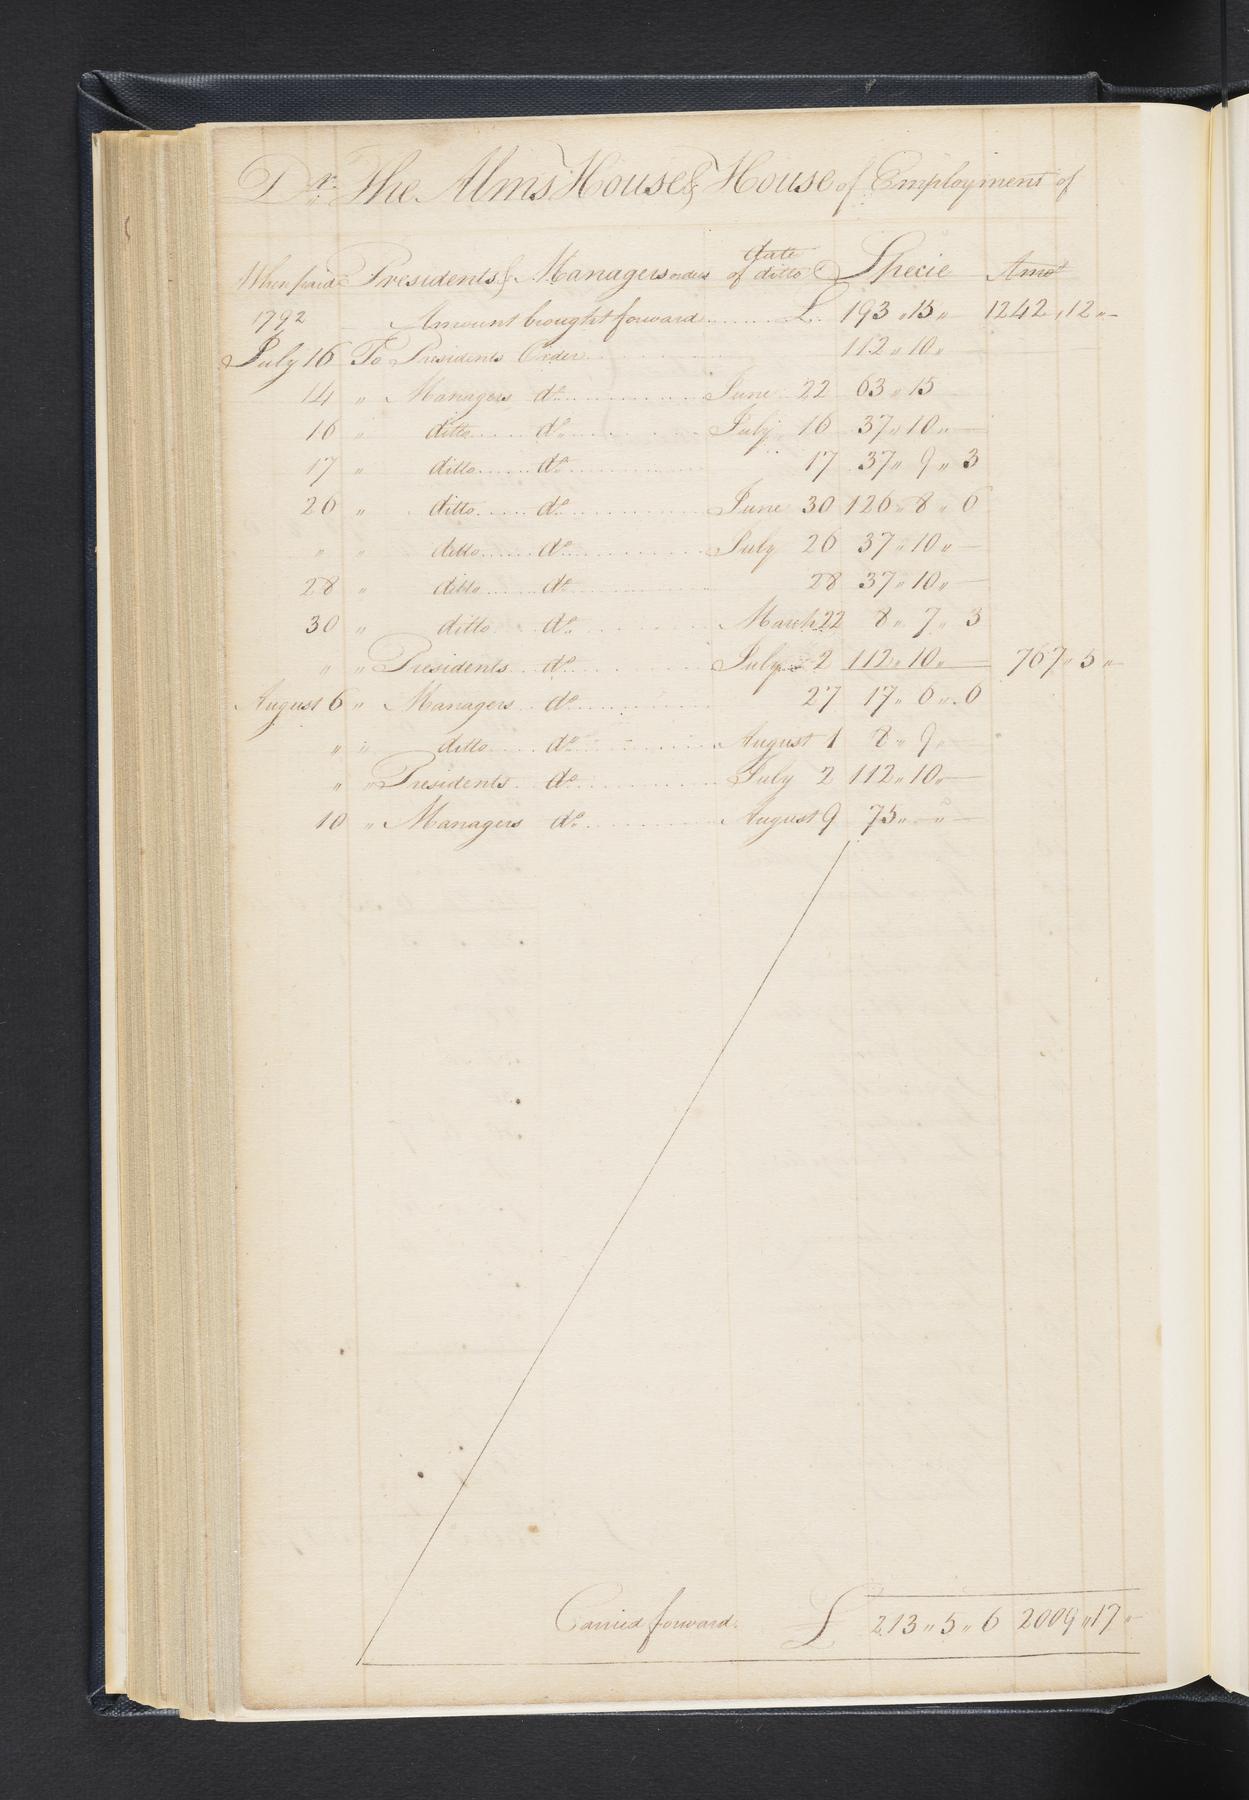 Dr. The Alms House & House of Employment of
When paid Presidents & Managers orders date of ditto Specie Amot
1792 Amount brought forward ........ £. 193 " 15 " 1242 " 12 " —
July 16 To Presidents Order 112 " 10 " —
14 " Managers do. June 22 63 " 15
16 " ditto do. July 16 37 " 10 " —
17 " ditto do. 17 37 " 9 " 3
26 " ditto do. June 30 126 " 8 " 6
" " ditto do. July 26 37 " 10 " —
28 " ditto do. 28 37 " 10 " —
30 " ditto do. March 22 8 " 7 " 3
" " Presidents do. July 2 112 " 10 " — 767 " 5 " —
August 6 " Managers do. 27 17 " 6 " 6
" " ditto do. August 1 8 " 9 " —
" " Presidents do. July 2 112 " 10 " —
10 " Managers do. August 9 75 " — " —
Carried forward. £ 213 " 5 " 6 2009 " 17 " —